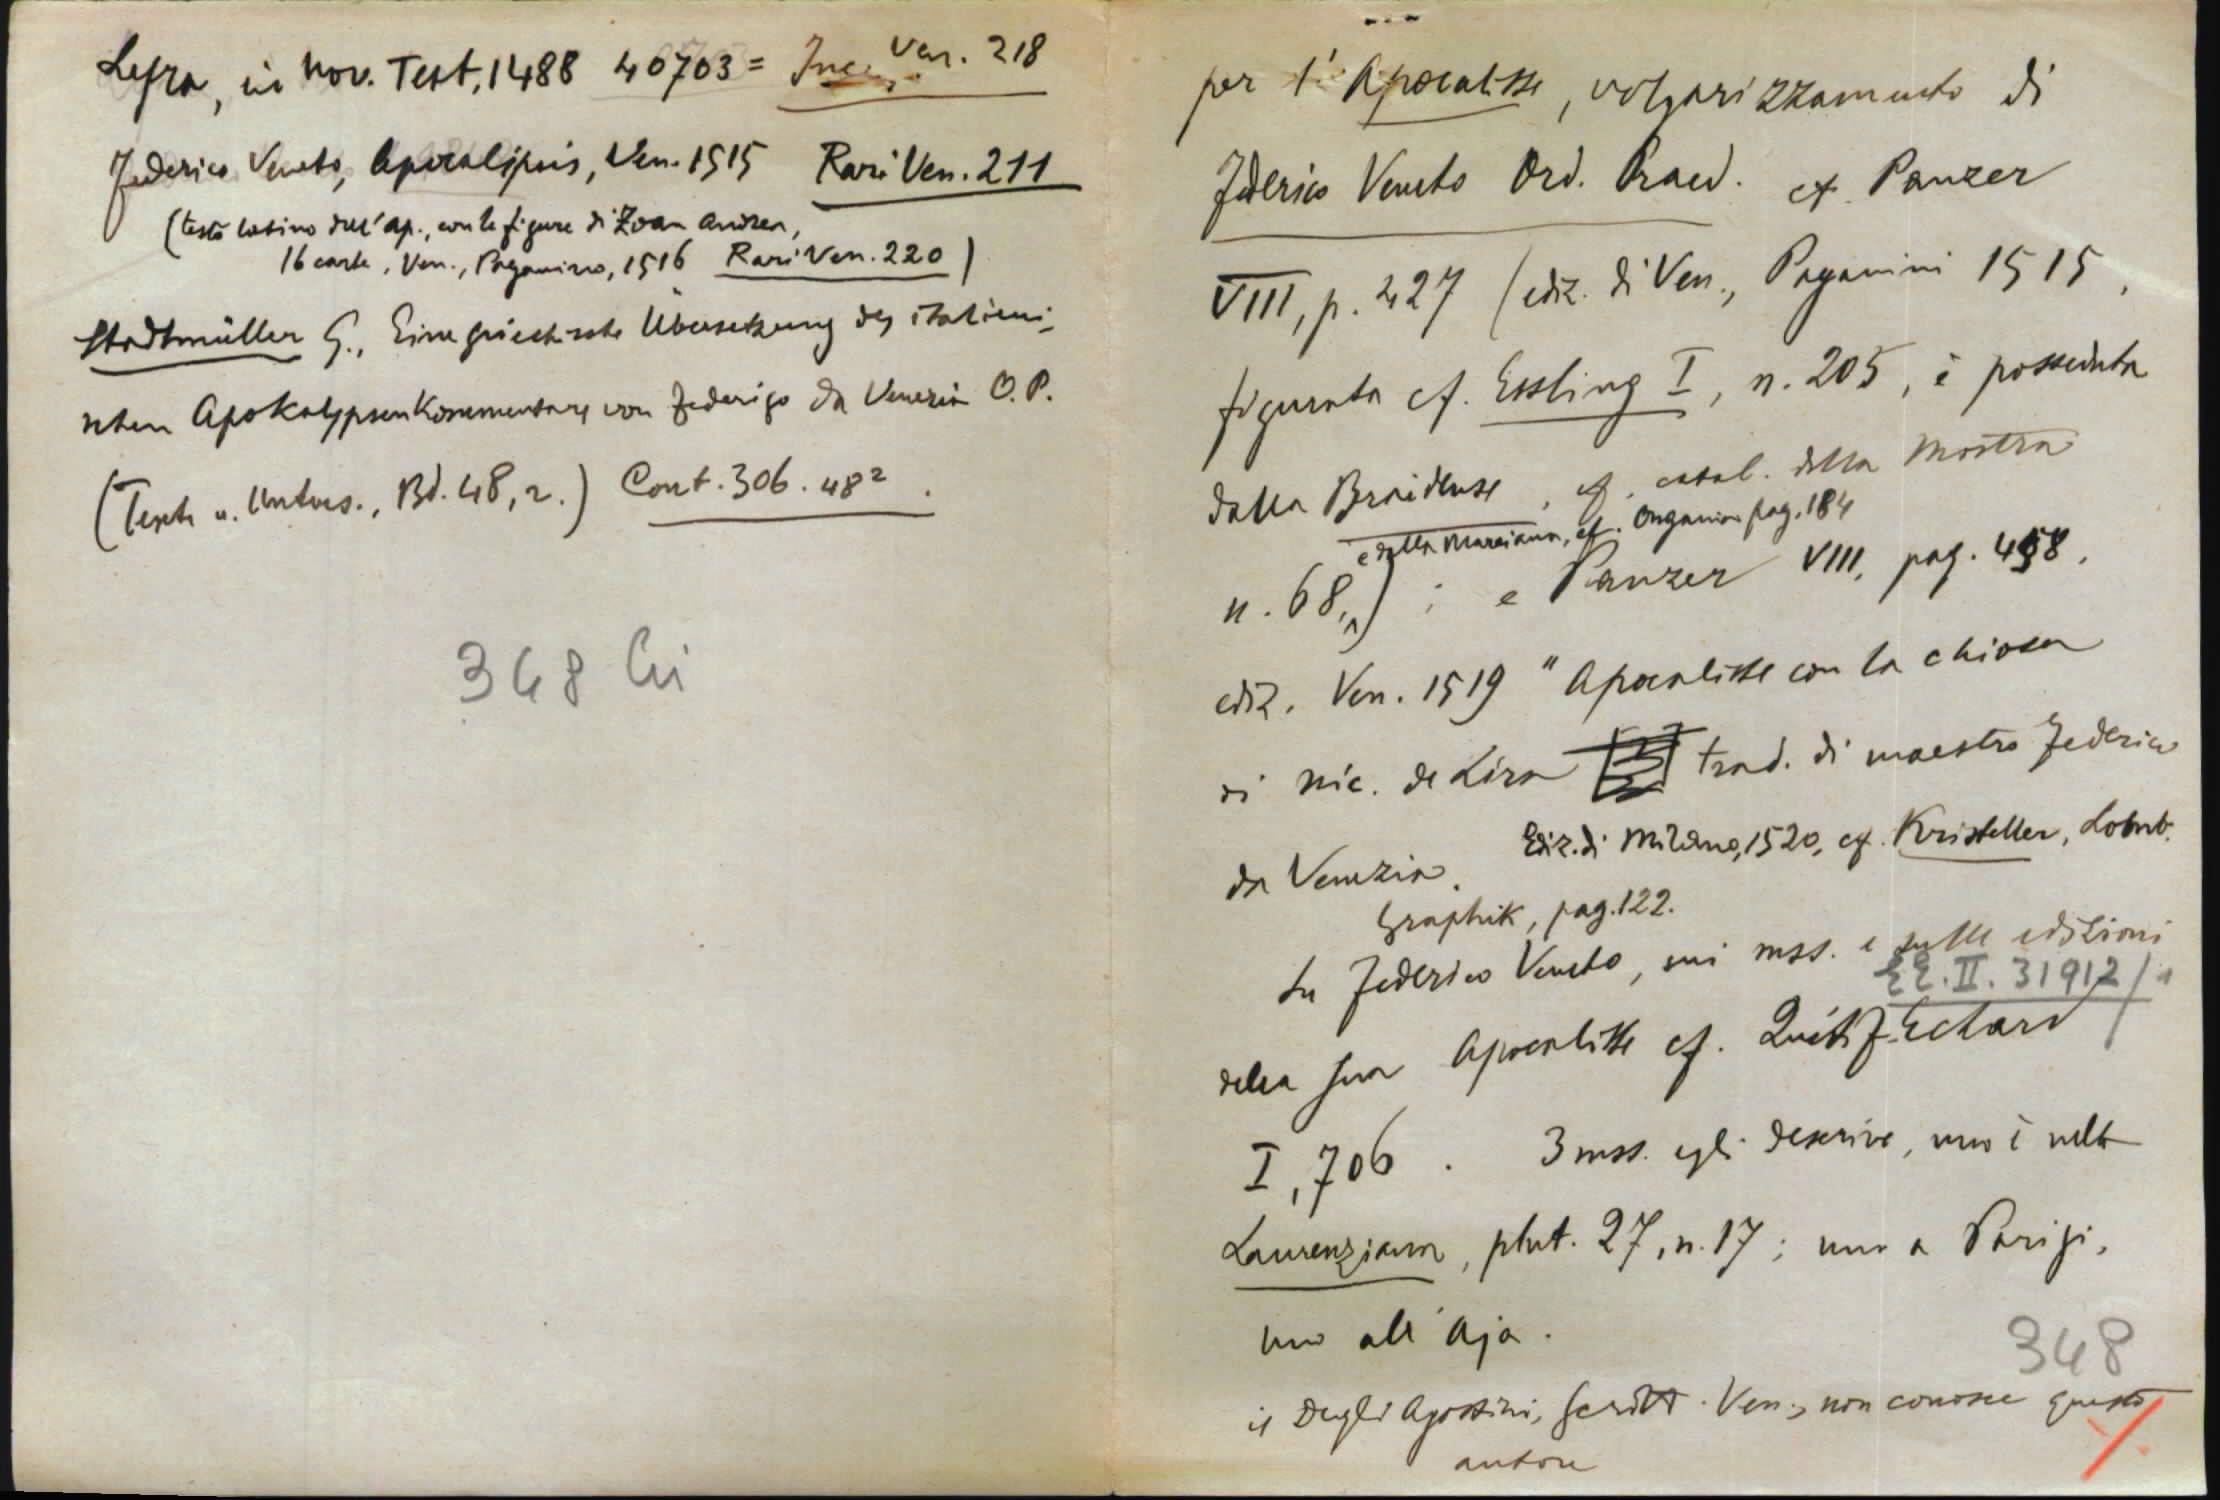 Lyra, in Nov. Test, 1488 40703 = Inc. Ven. 218
Federico Veneto, Apocalipsis, Ven. 1515 Rari Ven. 211
(testo latino dell'Ap., con le figure di Zoan Andrea,
16 carte, Ven., Paganino, 1516 Rari Ven. 220)
Stadtmüller G., Eine griechische Übersetzung des italieni-
schen Apokalypsenkommentars von Federigo da Venezia O.P.
(Texte u. Unters., Bd. 48, 2.) Cont. 306. 48².
348 Ci
per l'Apocalisse, volgarizzamento di
Federico Veneto Ord. Praed. cf. Panzer
VIII, p. 427 (ediz. di Ven., Paganini 1515,
figurata cf. Essling I, n. 205, è posseduta
dalla Braidense, cf. catal. della Mostra
e dalla Marciana, cf. Ongania pag. 184
n. 68,) ; e Panzer VIII, pag. 458.
ediz. Ven. 1519 "Apocalisse con la chiosa
di Nic. de Lira trad. di maestro Federico
da Venezia. Ediz. di Milano, 1520, cf. Kristeller, Lomb.
Graphik, pag. 122.
Su Federico Veneto, sui mss. e sulle edizioni
EE. II. 31912/1
della sua Apocalisse cf. Quétif-Echard
I, 706. 3 mss. egli descrive, uno è nella
Laurenziana, plut. 27, n. 17; uno a Parigi,
uno all'Aja.
348
il Degli Agostini, Scritt. Ven., non conosce questo
autore